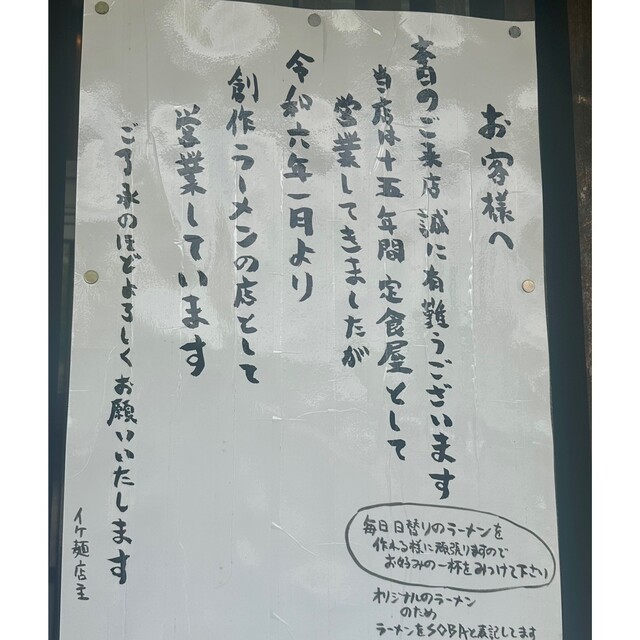 お客様へ
本日のご来店誠に有難うございます
当店は十五年間定食屋として
営業してきましたが
令和六年一月より
創作ラーメンの店として
営業しています
ご了承のほどよろしくお願いいたします
イケ麺店主
毎日日替りのラーメンを
作れる様に頑張りますので
お好みの一杯をみつけて下さい
オリジナルのラーメン
のため
ラーメンをSOBAと表記してます